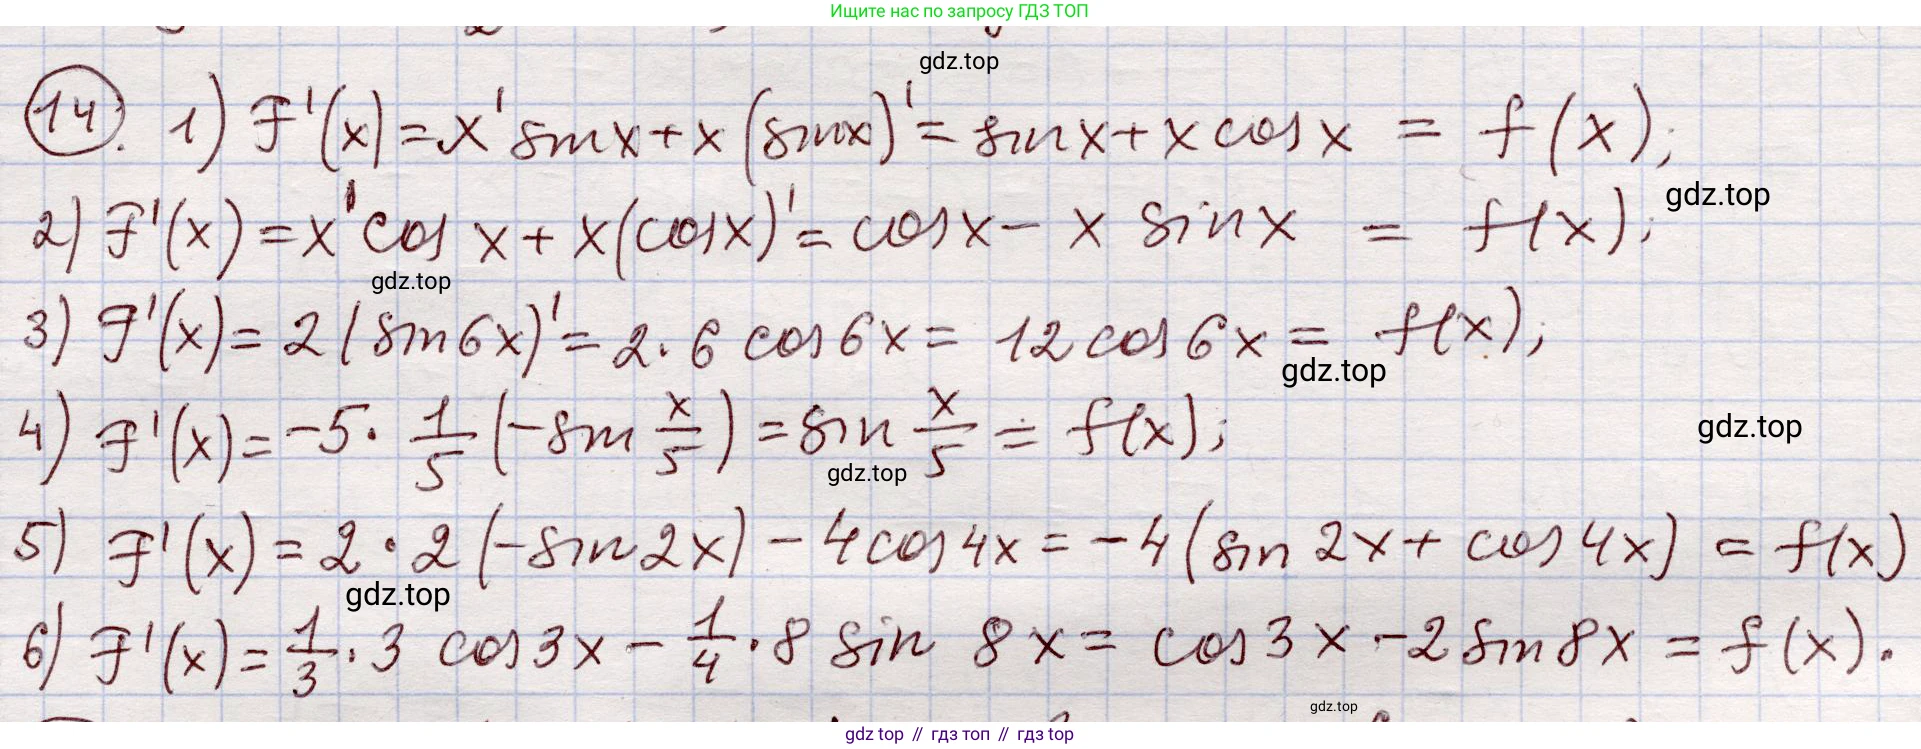 Ищите нас по запросу ГДЗ ТОП
gdz.top
14. 1) F'(x) = x' sin x + x (sin x)' = sin x + x cos x = f(x);
gdz.top
2) F'(x) = x' cos x + x (cos x)' = cos x - x sin x = f(x);
gdz.top
3) F'(x) = 2 (sin 6x)' = 2 · 6 cos 6x = 12 cos 6x = f(x);
gdz.top
4) F'(x) = -5 · 1/5 (-sin x/5) = sin x/5 = f(x);
gdz.top
gdz.top
5) F'(x) = 2 · 2 (-sin 2x) - 4 cos 4x = -4 (sin 2x + cos 4x) = f(x)
gdz.top
6) F'(x) = 1/3 · 3 cos 3x - 1/4 · 8 sin 8x = cos 3x - 2 sin 8x = f(x).
gdz.top
gdz top // гдз топ // gdz top